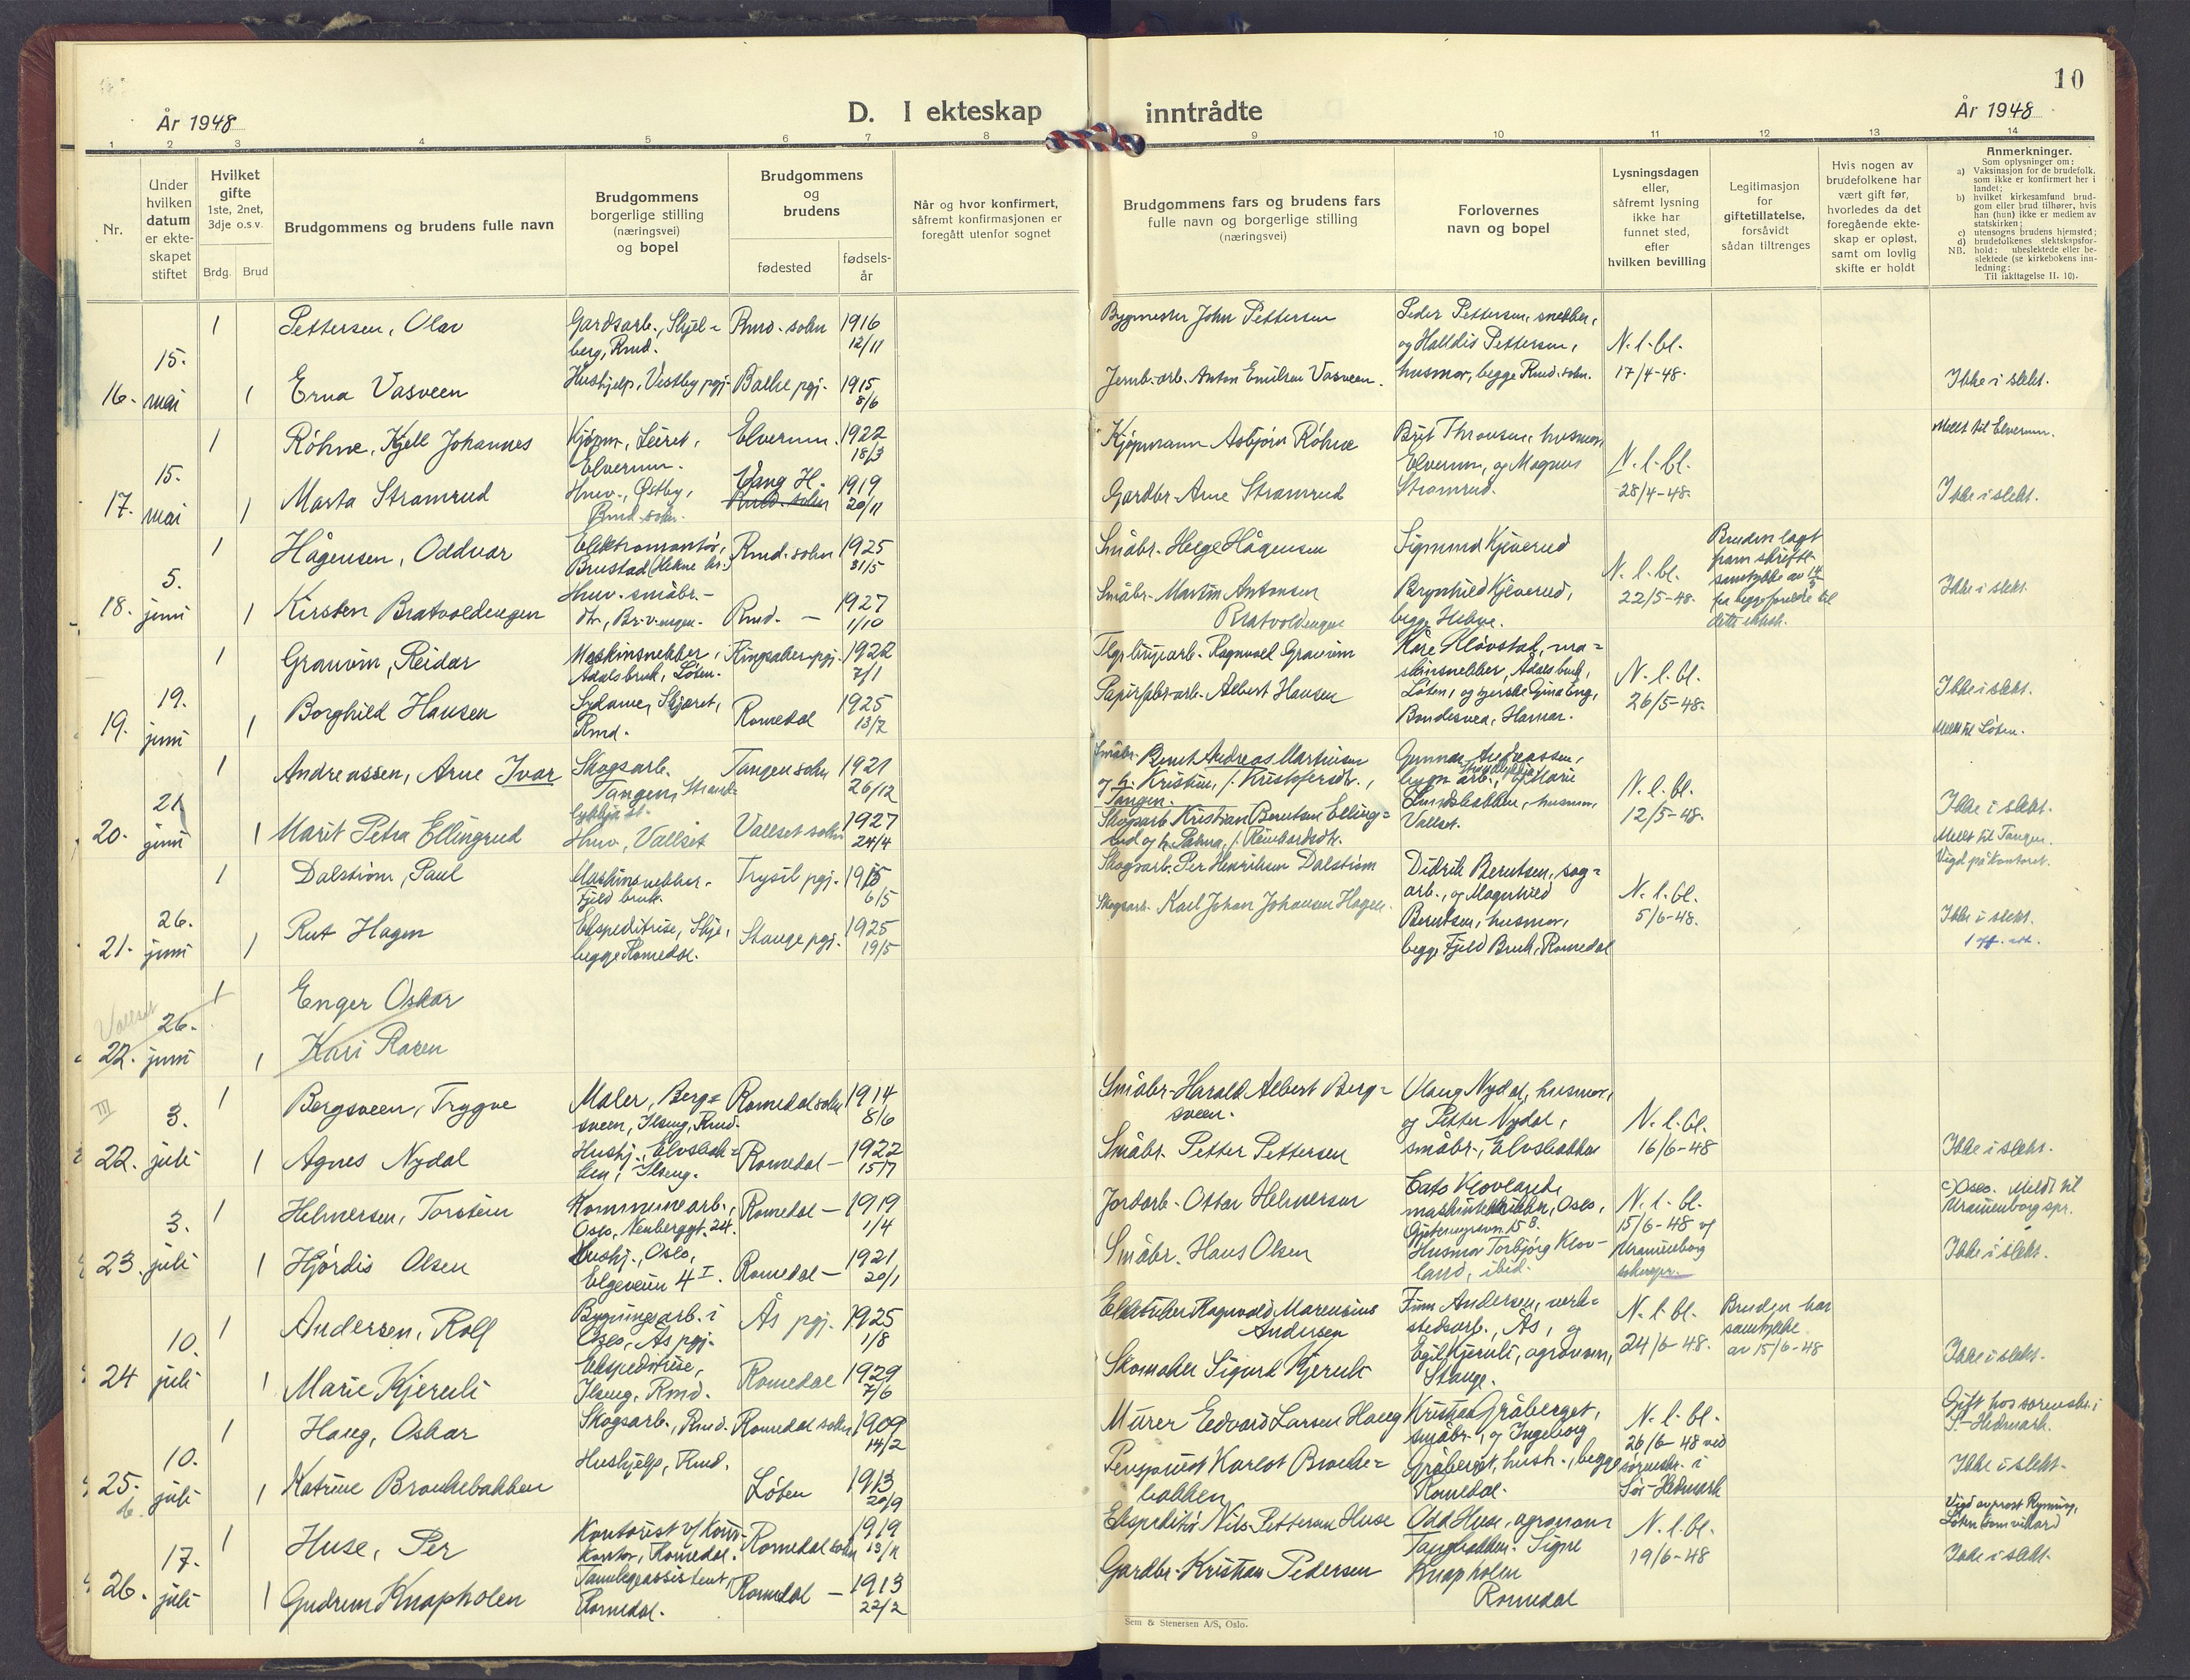 10
År 1948
D. I ekteskap inntrådte
År 1948
1 2 3 4 5 6 7 8 9 10 11 12 13 14
Nr.
Under hvilken datum er ekteskapet stiftet
Hvilket gifte 1ste, 2net, 3dje o.s.v.
Brdg. Brud
Brudgommens og brudens fulle navn
Brudgommens borgerlige stilling (næringsvei) og bopel
Brudgommens og brudens
fødested
fødsels-år
Når og hvor konfirmert, såfremt konfirmasjonen er foregått utenfor sognet
Brudgommens fars og brudens fars fulle navn og borgerlige stilling (næringsvei)
Forlovernes navn og bopel
Lysningsdagen eller, såfremt lysning ikke har funnet sted, efter hvilken bevilling
Legitimasjon for giftetillatelse, forsåvidt sådan tiltrenges
Hvis nogen av brudefolkene har vært gift før, hvorledes da det foregående ekteskap er opløst, samt om lovlig skifte er holdt
Anmerkninger.
Som oplysninger om:
a) Vaksinasjon for de brudefolk, som ikke er konfirmert her i landet;
b) hvilket kirkesamfund brudgom eller brud tilhører, hvis han (hun) ikke er medlem av statskirken;
c) utensogns brudens hjemsted;
d) brudefolkenes slektskapsforhold: ubeslektede eller beslektede (se kirkebokens innledning:
NB. Til iakttagelse II. 10).
16. 15. mai
1 Pettersen, Olav Gardsarb., Skjelberg, Rmd. Rmd. sokn 1916 12/11 Bygmester John Pettersen
Peder Pettersen, snekker, og Halldis Pettersen, husmor, begge Rmd. sokn. N. l. bl. 17/4-48.
1 Erna Vasveen Hushjelp, Vestby pgj. Balke pgj. 1915 8/6 Jernb.arb. Anton Emilsen Vasveen. Ikke i slekt.
17. 15. mai
1 Röhne, Kjell Johannes Kjöpm., Leiret, Elverum. Elverum. 1922 18/3 Kjøpmann Asbjörn Röhne
Elverum, og Magnus Stramrud. N. l. bl. 28/4-48. Meldt til Elverum.
1 Marta Stramrud Østby, Rmd. sokn. Vang H. Rmd. sokn 1919 20/11 Gardbr. Arne Stramrud Ikke i slekt.
18. 5. juni
1 Hågensen, Oddvar Elektromontør, Brustad Rmd. sokn 1925 31/5 Småbr. Helge Hågensen
Sigmund Kjeverud Brynhild Kjeverud, begge N. l. bl. 22/5-48.
1 Kirsten Bratvoldengen småbr.- dtr., Br.v.engen. Rmd. — 1927 1/10 Småbr. Martin Antonsen Bratvoldengen Ikke i slekt.
19. 19. juni
1 Granum, Reidar Maskinsnekker, Ådalsbruk, Löten. Ringsaker pgj. 1922 7/1 Ragnvald Granum
Kåre maskinsnekker, Ådalsbruk, Löten, og Gina Eng, Bondesvea, Hamar. N. l. bl. 26/5-48.
1 Borghild Hansen Sydame, Rmd. Romedal 1925 13/7 Papirfabr.arb. Albert Hansen Ikke i slekt.
Meldt til Löten.
20. 21 juni
1 Andreassen, Arne Ivar Skogsarb. Tangen, Tangen sokn 1921 26/12 Småbr. Bernt Andreas Martinsen og h. Kristine, f. Kristofersdtr., Tangen.
Gunnar Andreassen, og Marie husmor, Vallset. N. l. bl. 12/5-48.
1 Marit Petra Ellingrud Vallset Vallset sokn 1927 24/4 Skogsarb. Kristian Berntsen Ellingrud og h. f. Reinhardsdtr. Ikke i slekt.
Meldt til Tangen.
Vigd på kontoret.
21. 26. juni
1 Dalström, Paul Maskinsnekker. Fjeld bruk. Trysil pgj. 1915 6/5 Skogsarb. Per Henriksen Dalström
Didrik Berntsen, sagarb., og Magnhild Berntsen, husmor, begge Fjeld Bruk, Romedal N. l. bl. 5/6-48.
1 Rut Hagen Ekspeditrise, begge Romedal. Stange pgj. 1925 19/5 Skogsarb. Karl Johan Johansen Hagen. Ikke i slekt.
Vallset
22. 26. juni
1 Enger Oskar
1 Kari Rasen
III
22. 3. juli
1 Bergsveen, Trygve Maler, Bergsveen, Ilseng, Rmd. Romedal sokn 1914 8/6 Småbr. Harald Albert Bergsveen.
Nydal, husmor, og Petter Nydal, småbr., Elvsbakken N. l. bl. 16/6-48
1 Agnes Nydal Hushj., Elvsbakken, Ilseng. Romedal — 1922 15/7 Småbr. Petter Pettersen Ikke i slekt.
23. 3. juli
1 Helmersen, Torstein Kommunearb., Oslo, Neuberggt. 24. Romedal — 1919 1/4 Jordarb. Ottar Helmersen
Cato Klovland, Oslo, Husmor Torbjörg Klovland, ibid. N. l. bl. 15/6-48 Uranienborg
c) Oslo. Meldt til Uranienborg spr.
1 Hjördis Olsen Hushj., Oslo, Elgeveien 4 I. Romedal — 1921 20/1 Småbr. Hans Olsen Ikke i slekt.
24 10. juli
1 Andersen, Rolf Bygningsarb. i Oslo, Ås pgj. Ås pgj. 1925 1/8 Elektriker Ragnvald Marensius Andersen
Finn Andersen, verkstedsarb., Ås, og Egil Kjeruli, agronom, Stange. N. l. bl. 24/6-48. Bruden har samtykke av 15/6-48
1 Marie Kjeruli Ekspeditrise, Ilseng, Rmd. Romedal 1929 7/6 Skomaker Sigurd Kjeruli Ikke i slekt.
25. 10. juli
1 Haug, Oskar Skogsarb., Rmd. Romedal sokn 1909 14/2 Murer Edvard Larsen Haug
Kristian Gråberget, småbr., og Ingeborg Gråberget, hush., begge Romedal. N. l. bl. 26/6-48 ved sorenskr. i Sør-Hedmark
Gift hos sorenskr. i S.-Hedmark.
1 Katrine Bronkebakken Hushjelp, Rmd. Löten 1913 20/9 Karlot Bronkebakken Ikke i slekt.
26. 17. juli
1 Huse, Per Kontorist v/ Romedal. Romedal sokn 1919 13/11 Ekspeditør Nils Pettersen Huse
Odd Huse, agronom Signe Knapholen Romedal N. l. bl. 19/6-48
Vigd av prost Løten som
1 Gudrun Knapholen Tannlegeassistent, Romedal. Romedal — 1913 22/2 Gardbr. Kristian Pedersen Ikke i slekt.
Sem & Stenersen A/S, Oslo.